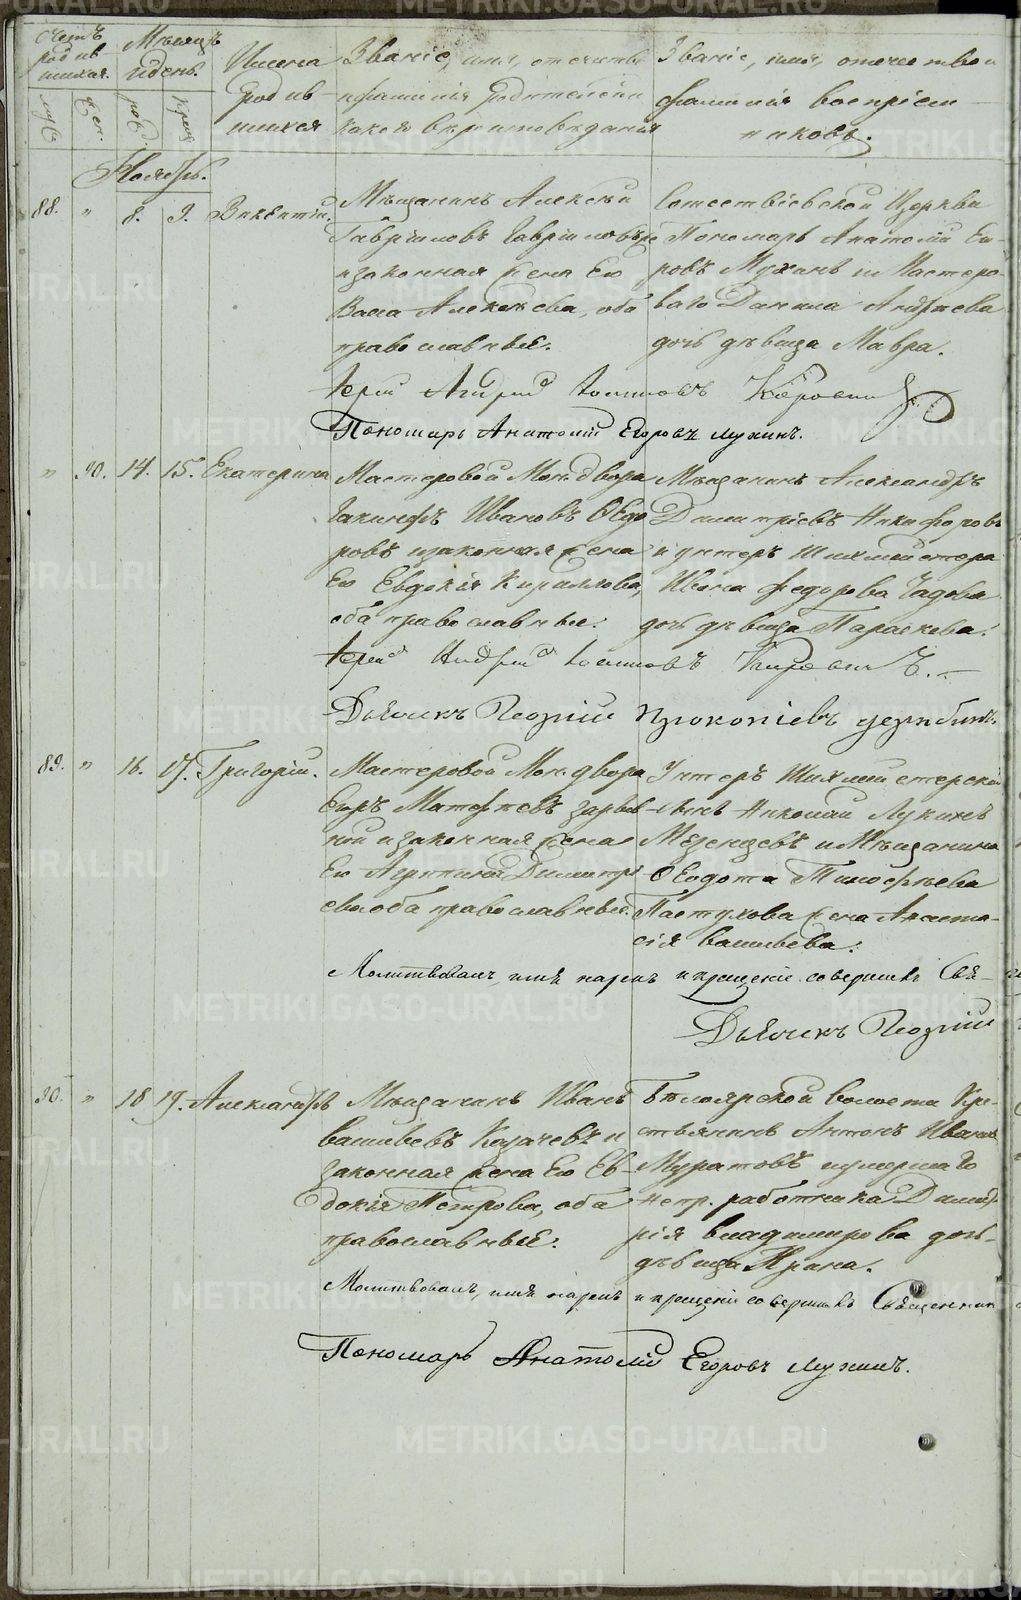 Счетъ родив шихся.
муж.
жен.
Мѣсяцъ и день.
рож.
крещ.
Имена родив шихся
Званіе, имя, отечество и фамилія родителей и какого вѣроисповѣданія
Званіе, имя, отечество и фамилія воспріем никовъ.
Ноябрь.
88. " 8. 9. Викентій.
Мѣщанинъ Алексѣй
Гавріиловъ
и законная жена Его
Васса Алексѣева, оба
православные.
Сошествіевской Церкви
Пономарь Анатолій Его
ровъ Мухинъ и Мастеро
ваго Данила Андреева
дочь дѣвица Мавра.
Іерей Андрей Іоанновъ
Пономарь Анатолій Егоровъ Мухинъ.
" 90. 14. 15. Екатерина
Мастеровой Мон. двора
Іакинфъ Ивановъ Ѳедо
ровъ и законная жена
Его Евдокія Кириллова,
оба православные.
Мѣщанинъ Александръ
Димитріевъ Никифоровъ
и унтеръ Шихмейстера
Ивана Федорова Чадова
дочь дѣвица Параскева.
Іерей Андрей Іоанновъ
Дьячекъ Георгій Прокопіевъ
89. " 16. 17. Григорій.
Мастеровой Мон. двора
Егоръ Матфѣевъ
и законная жена
Его Агрипина Димитрі
ева оба православные.
Унтеръ Шихмейстерскій
сынъ Николай Лукинъ
Мезенцевъ и Мѣщанина
Ѳеодота Тимофѣева
Пастухова жена Анаста
сія Васильева.
Молитвовалъ, имя нарекъ и крещеніе совершилъ Свя-
Дьячекъ Георгій
90. " 18 19. Александръ
Мѣщанинъ Иванъ
Васильевъ Казачевъ и
законная жена Его Ев
докія Петрова, оба
православные.
Бѣлоярской волости Кре
стьянинъ Антонъ Ивановъ
Муратовъ и умершаго
непр. работника Димит
рія Владимірова дочь
дѣвица Ирина.
Молитвовалъ, имя нарекъ и крещеніе совершилъ Священник
Пономарь Анатолій Егоровъ Мухинъ.
METRIKI.GASO-URAL.RU